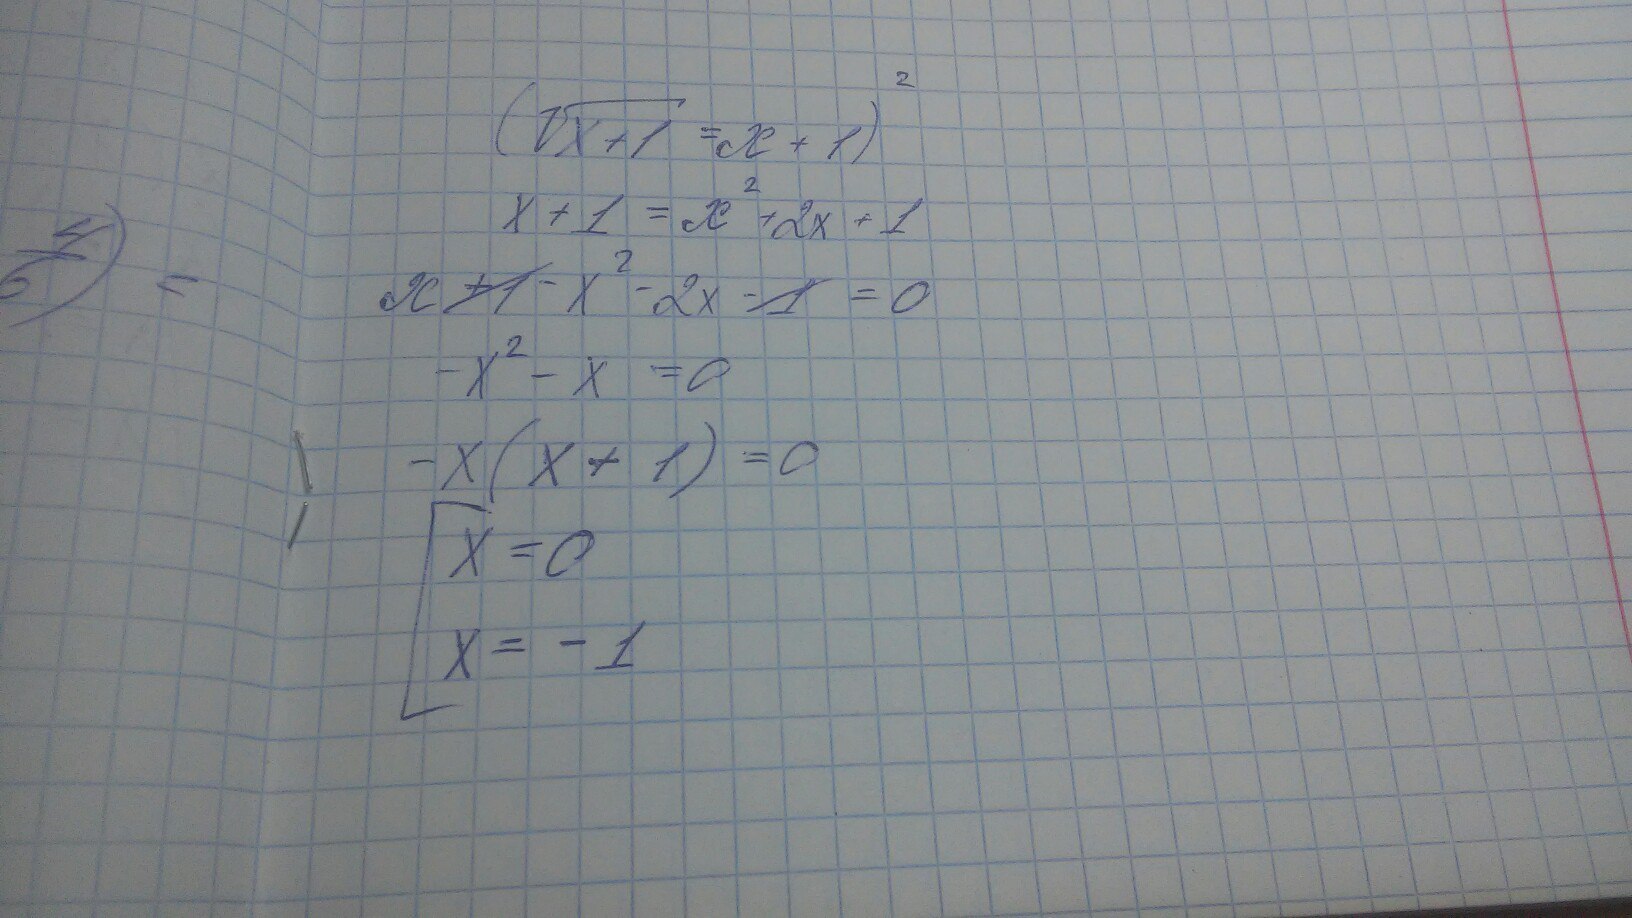 (√x+1 = x + 1)²
x + 1 = x² + 2x + 1
x + 1 - x² - 2x - 1 = 0
-x² - x = 0
-x(x + 1) = 0
x = 0
x = -1
) =